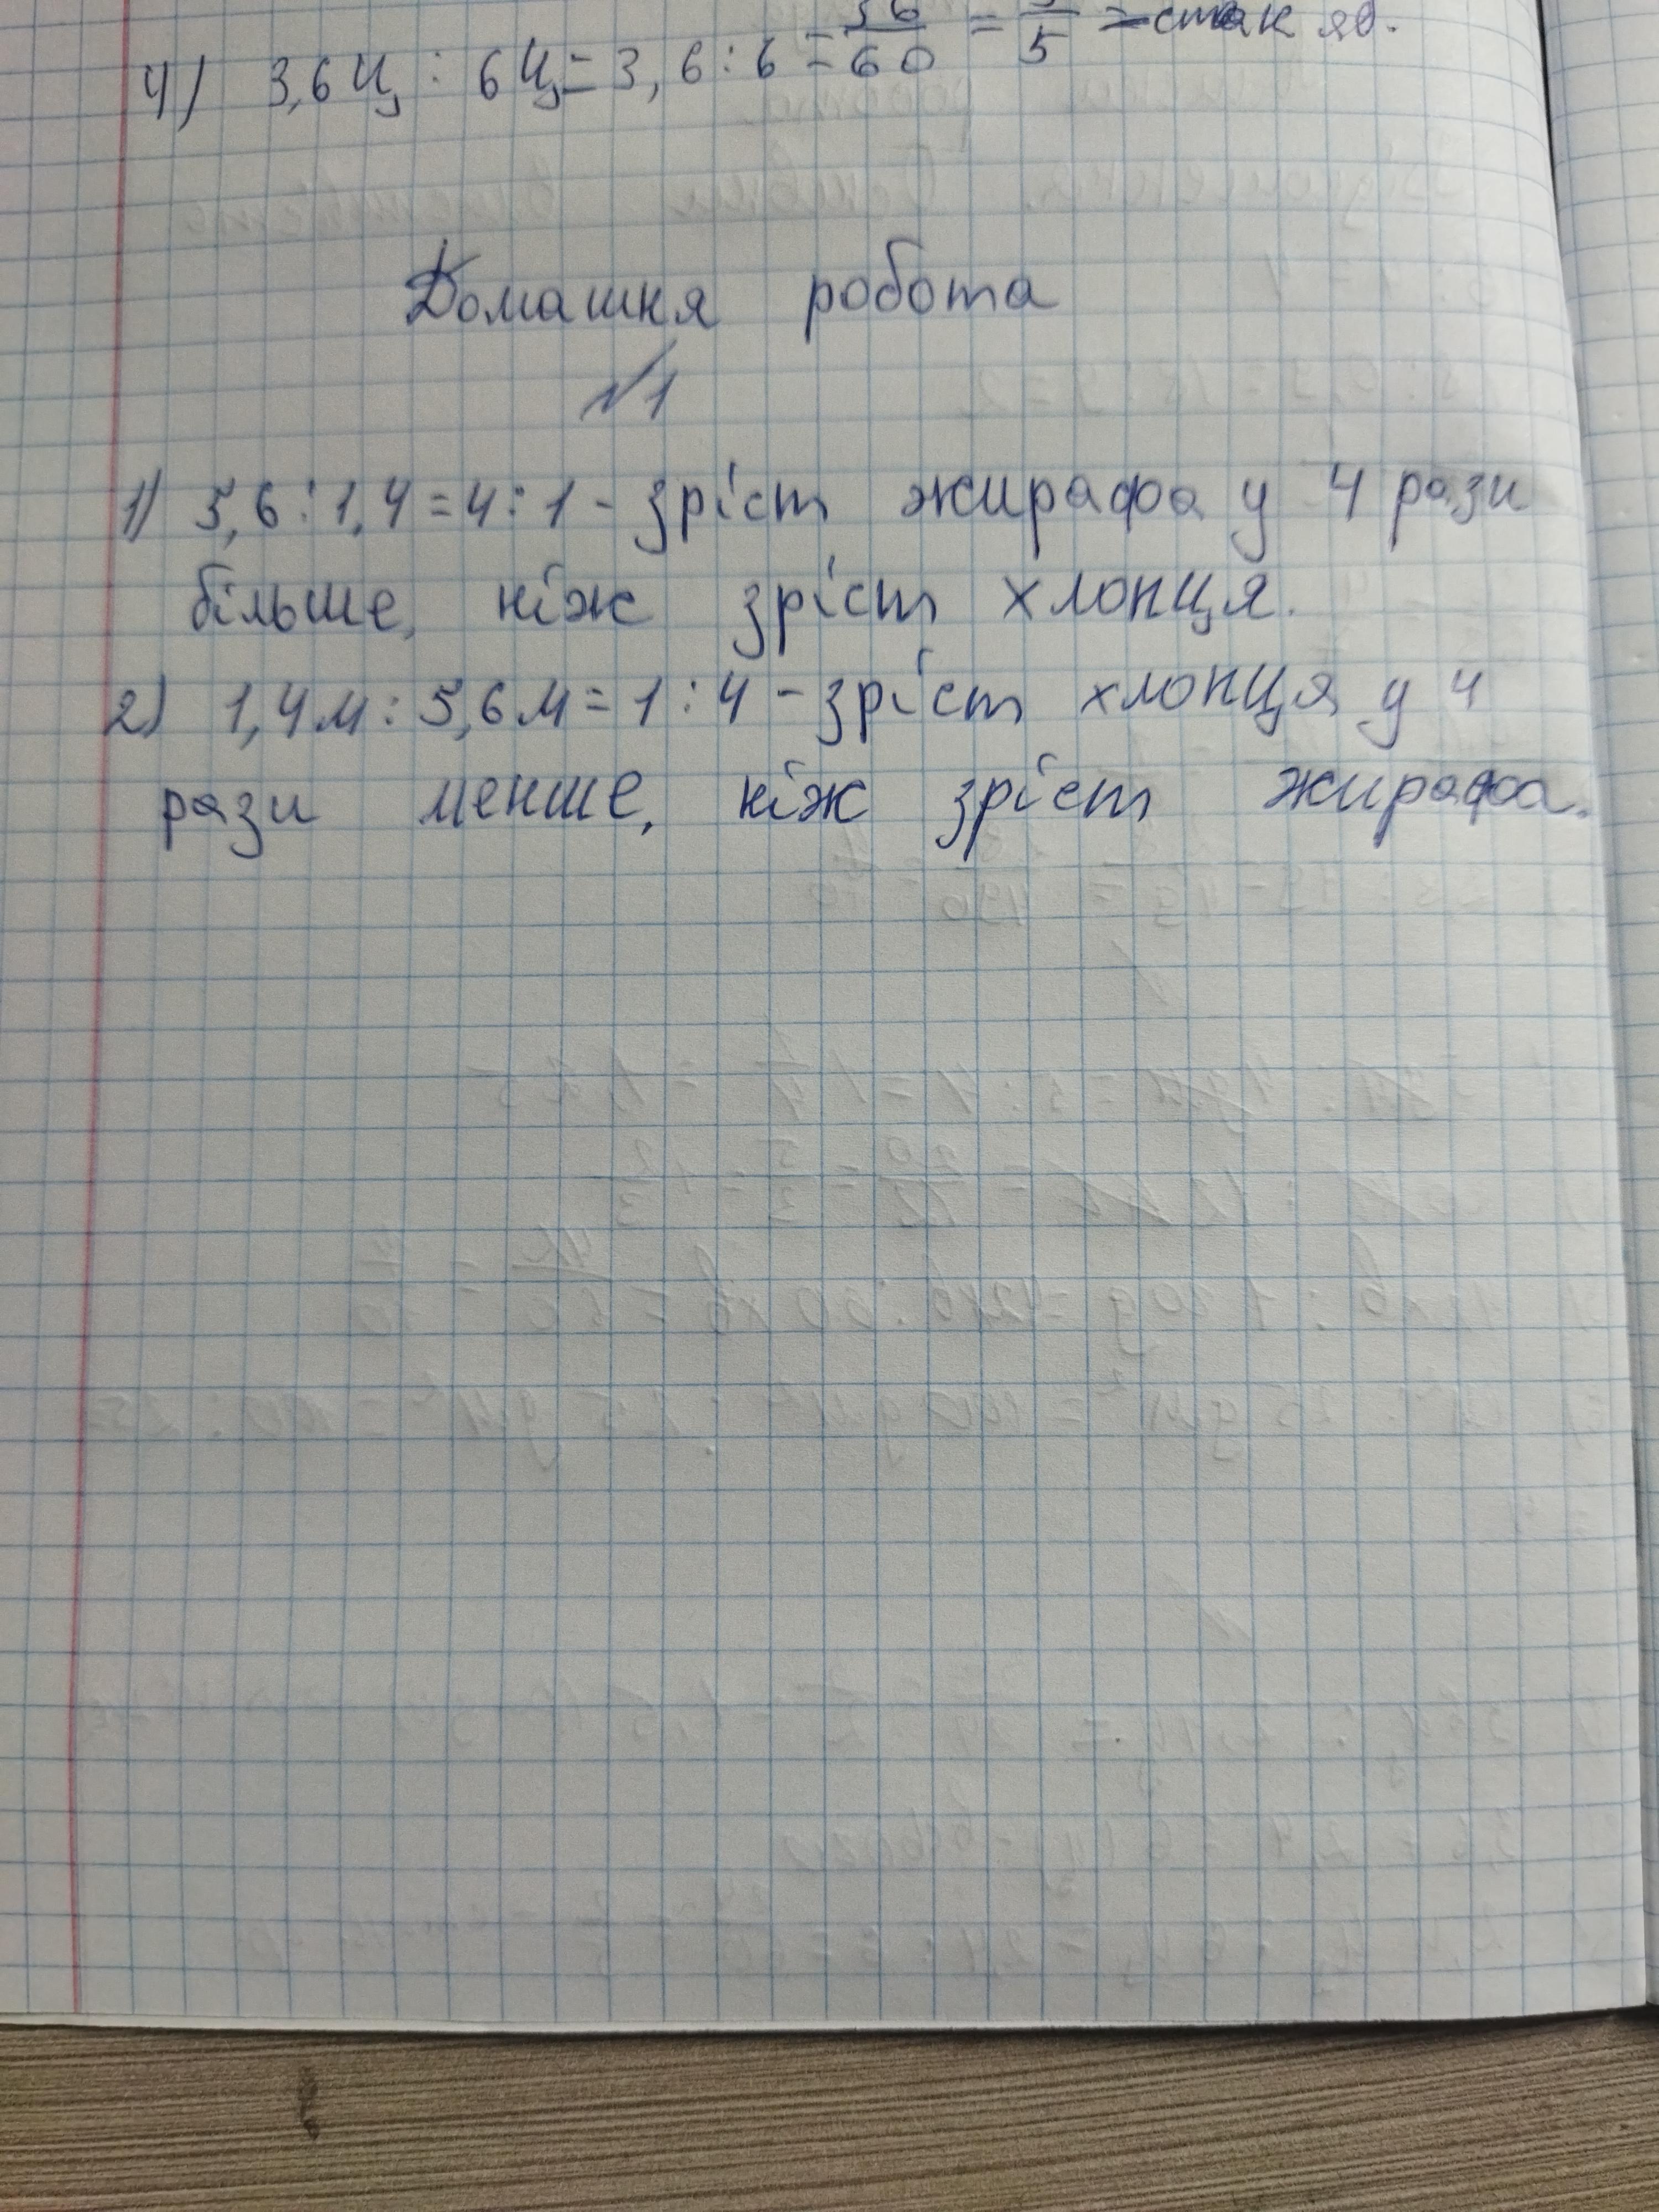 4) 3,6ц : 6ц = 3,6 : 6 = 36/60 = 3/5 = - стак яв.
Домашня робота
№1
1) 5,6 : 1,4 = 4 : 1 - зріст жирафа у 4 рази
більше, ніж зріст хлопця.
2) 1,4м : 5,6м = 1 : 4 - зріст хлопця у 4
рази менше, ніж зріст жирафа.